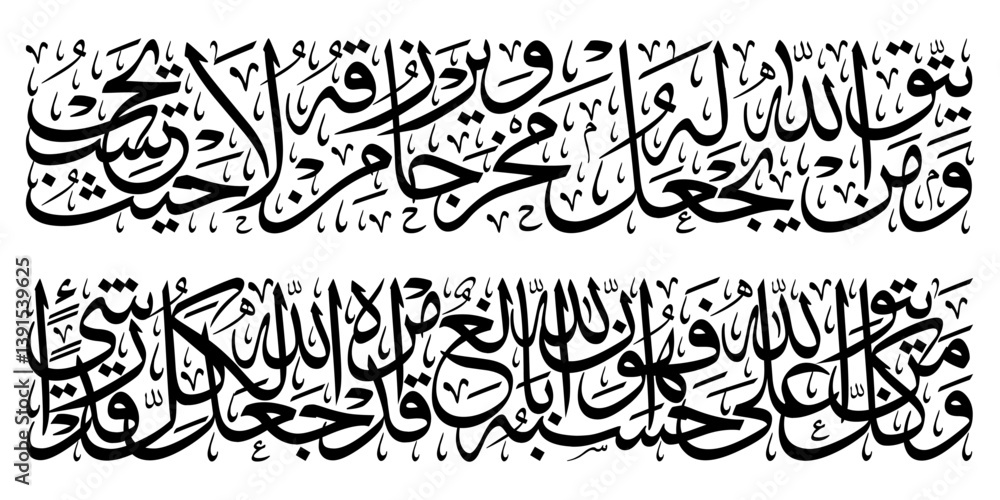 ومن يتق الله يجعل له مخرجا ويرزقه من حيث لا يحتسب
ومن يتوكل على الله فهو حسبه إن الله بالغ أمره قد جعل الله لكل شيء قدرا
Adobe Stock | #1391539625